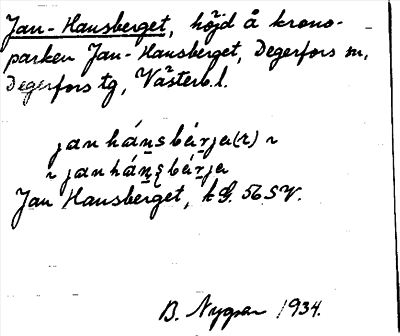 Jan-Hansberget, höjd å krono-
parken Jan-Hansberget, Degerfors sn,
Degerfors tg, Västerb. l.
jan háṉs bárja(r) ~
~ jan háṉʂ bárja
Jan Hansberget, k bl. 56 SV.
B. Nygren 1934.